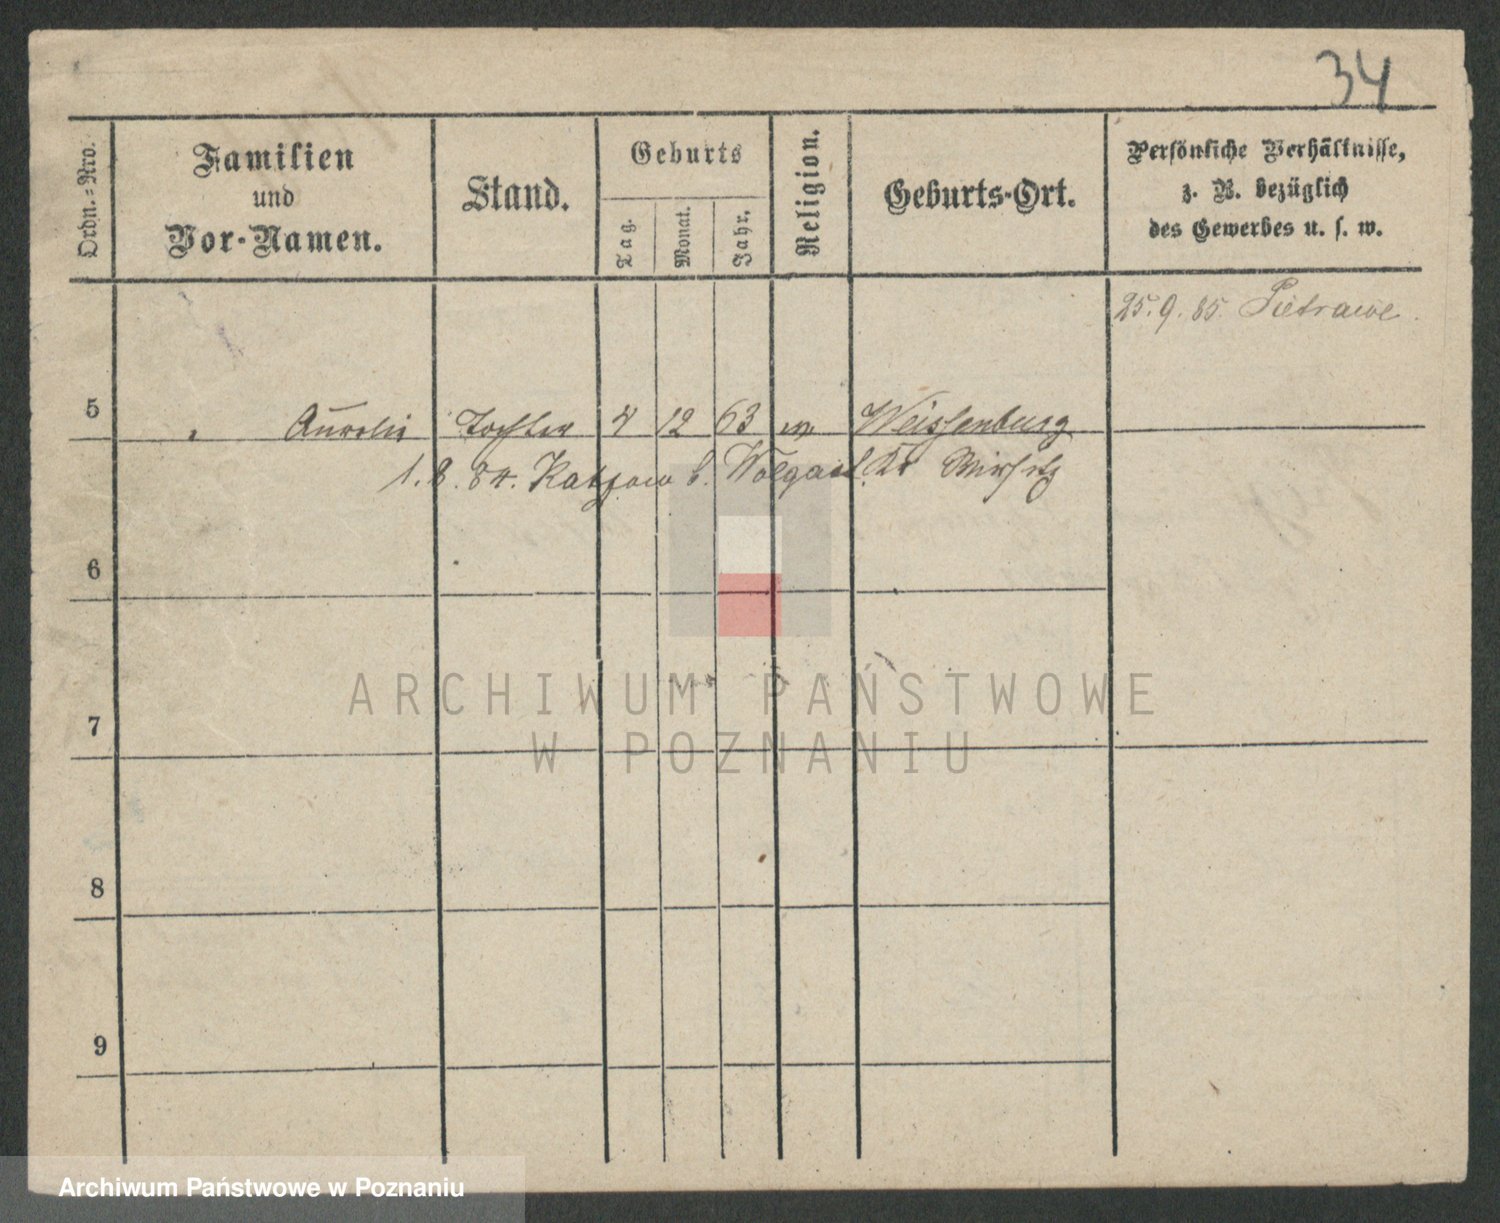 34
Ordn.-Nro.
Familien
und
Vor-Namen.
Stand.
Geburts
Tag.
Monat.
Jahr.
Religion.
Geburts-Ort.
Persönliche Verhältnisse,
z. B. bezüglich
des Gewerbes u. s. w.
25.9.85
5 Aurelie Tochter 4 12 63 Weissenburg
1.8.84. Katzow b. Wolgast. Kr Wirsitz
6
7
8
9
ARCHIWUM PAŃSTWOWE
W POZNANIU
Archiwum Państwowe w Poznaniu